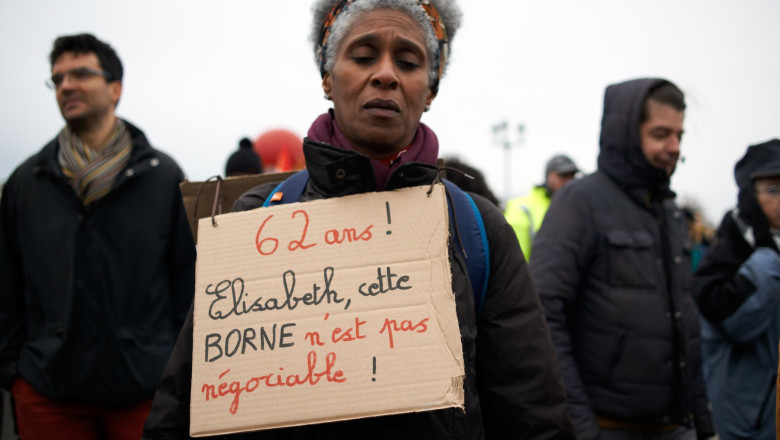 62 ans !
Elisabeth, cette
BORNE n'est pas
négociable !